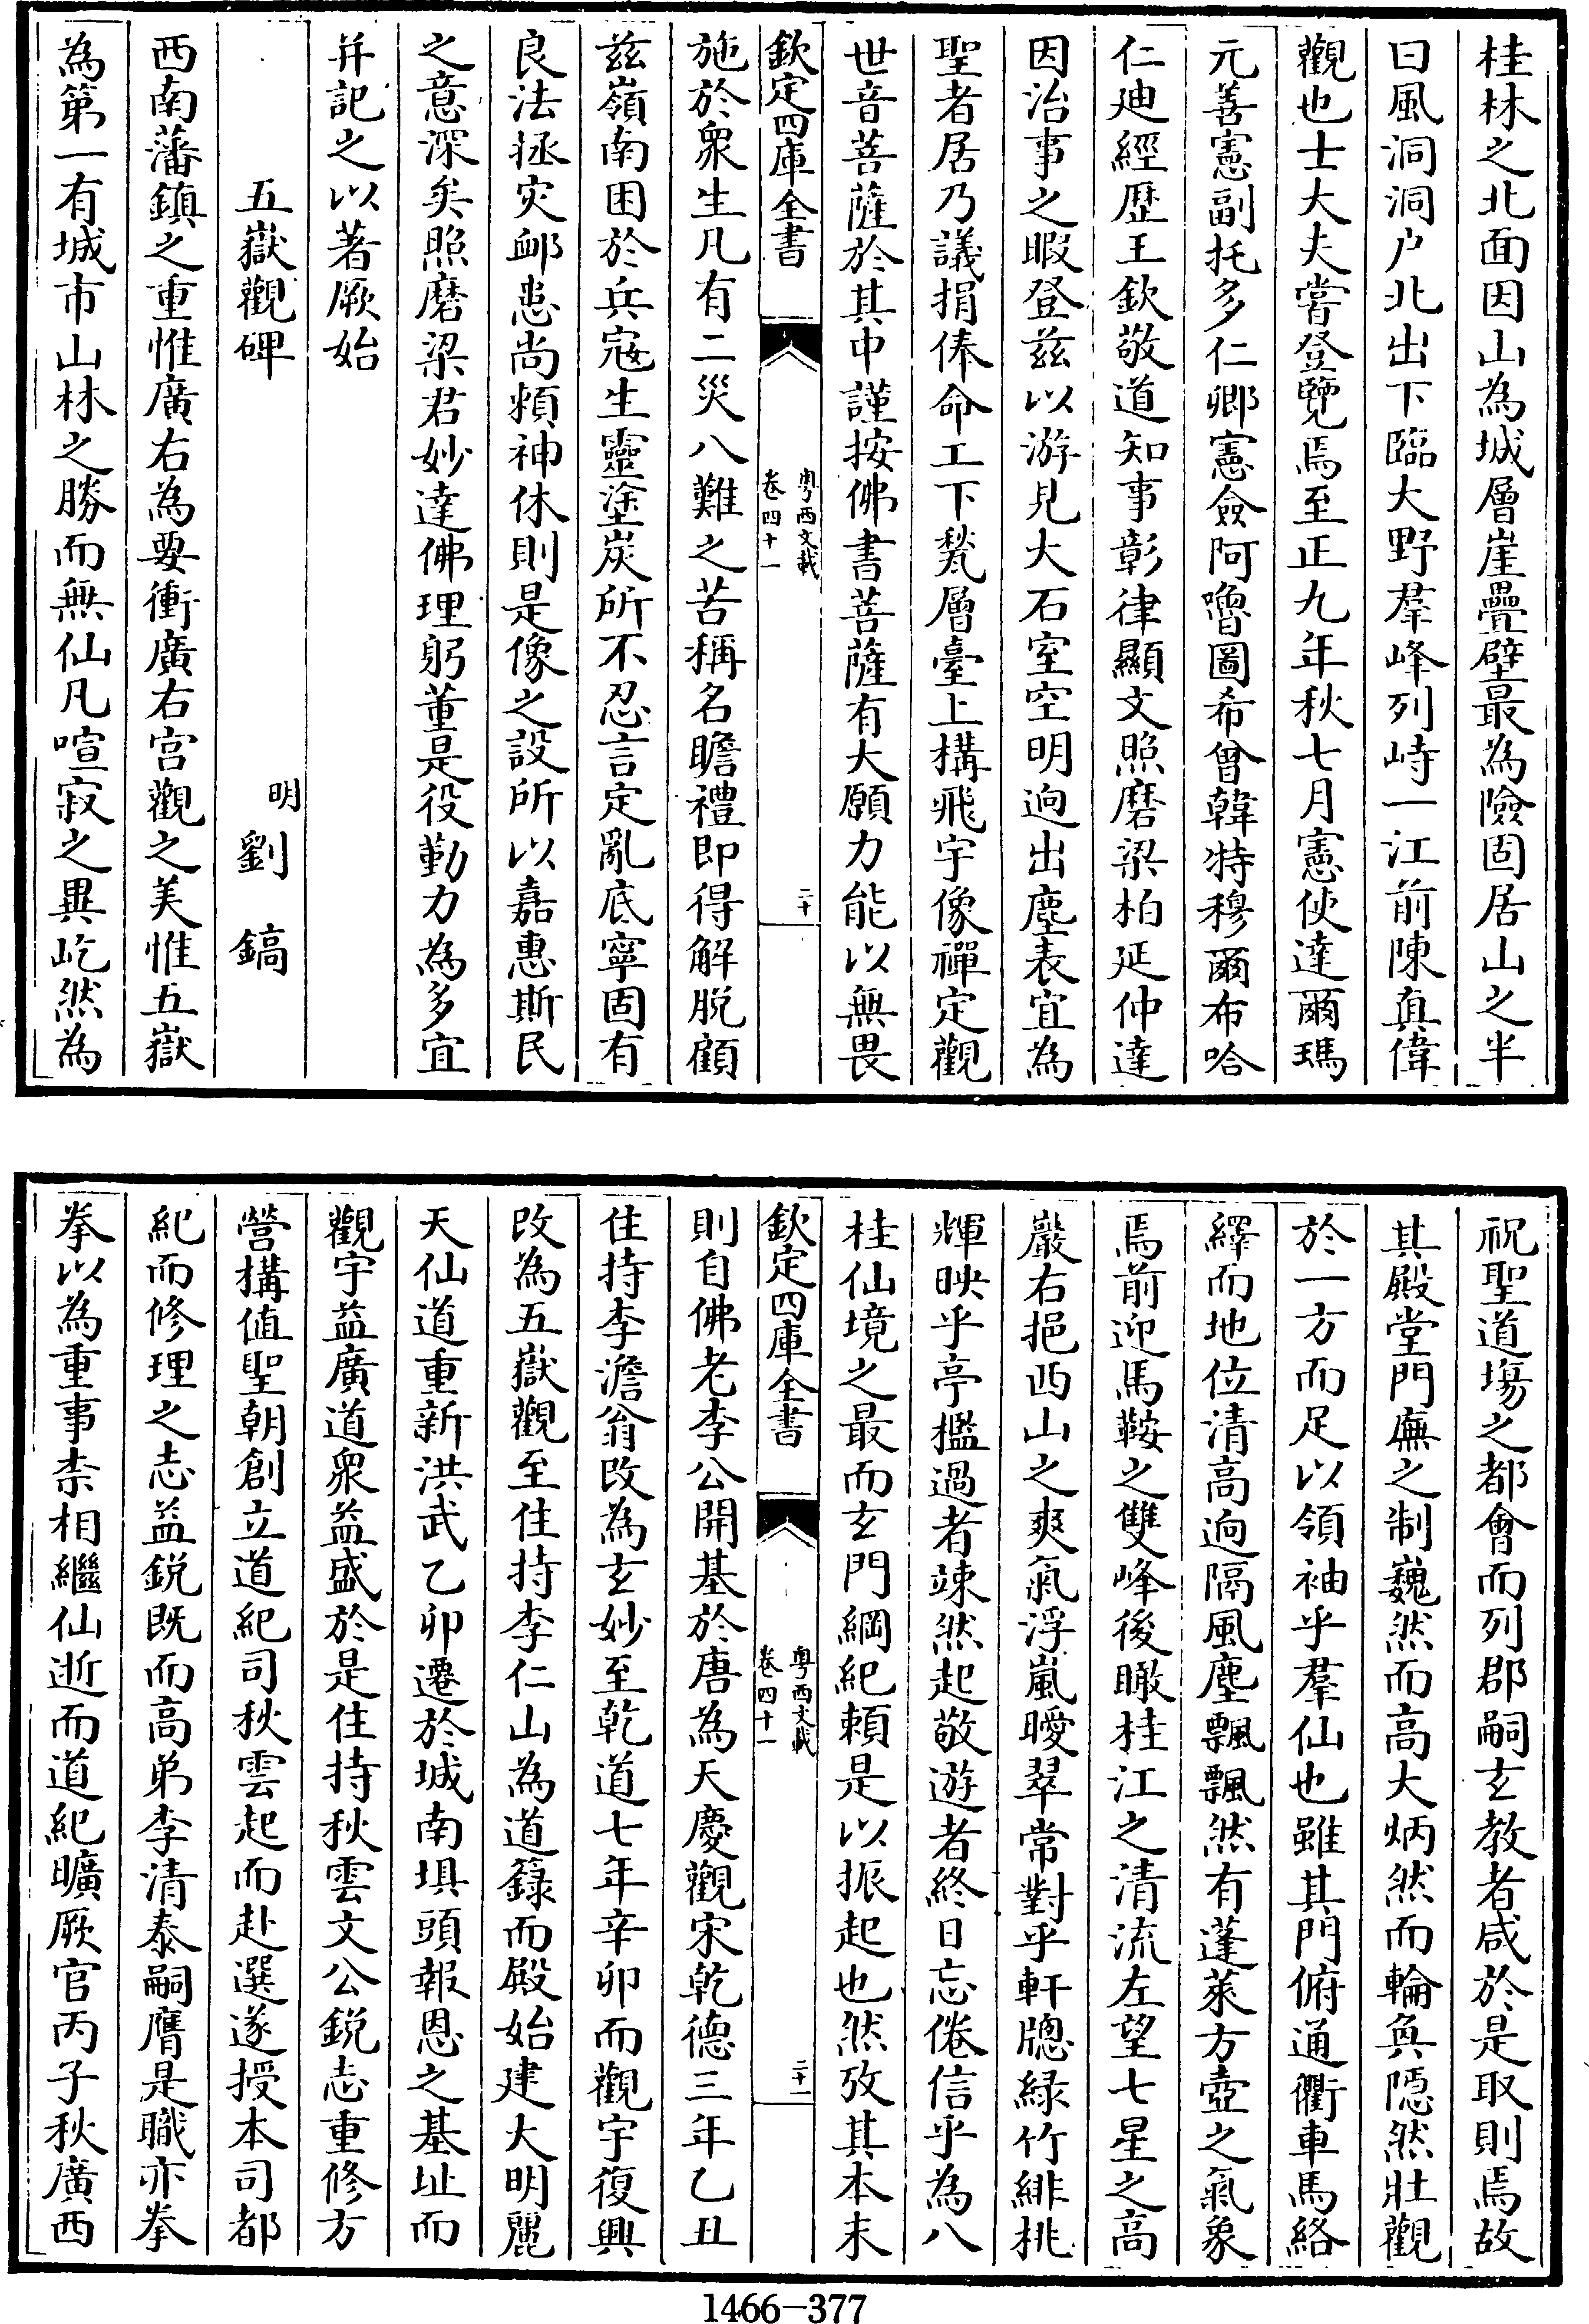 桂林之北面因山為城層崖疊壁最為險固居山之半
曰風洞洞户北出下臨大野羣峰列峙一江前陳真偉
觀也士大夫嘗登覽焉至正九年秋七月憲使達爾瑪
元善憲副托多仁卿憲僉阿嚕圖希曾韓特穆爾布哈
仁廸經歴王欽敬道知事彰律顯文照磨梁柏延仲達
因治事之暇登兹以游見大石室空明逈出塵表宜為
聖者居乃議捐俸命工下甃層臺上構飛宇像禪定觀
世音菩薩於其中謹按佛書菩薩有大願力能以無畏
欽定四庫全書
粤西文載
卷四十一
二十
施於衆生凡有二災八難之苦稱名瞻禮即得解脱顧
兹嶺南困於兵宼生靈塗炭所不忍言定亂底寧固有
良法拯灾邮患尚頼神休則是像之設所以嘉惠斯民
之意深矣照磨梁君妙達佛理躬董是役勤力為多宜
并記之以著厥始
五嶽觀碑
明 劉 鎬
西南藩鎮之重惟廣右為要衝廣右宫觀之美惟五嶽
為第一有城市山林之勝而無仙凡喧寂之異屹然為
祝聖道塲之都會而列郡嗣玄教者咸於是取則焉故
其殿堂門廡之制巍然而高大炳然而輪奐隱然壯觀
於一方而足以領袖乎羣仙也雖其門俯通衢車馬絡
繹而地位清高逈隔風塵飄飄然有蓬萊方壺之氣象
焉前迎馬鞍之雙峰後瞰桂江之清流左望七星之高
巖右挹西山之爽氣浮嵐曖翠常對乎軒牎緑竹緋桃
輝映乎亭檻過者竦然起敬遊者終日忘倦信乎為八
桂仙境之最而玄門綱紀頼是以振起也然攷其本末
欽定四庫全書
粤西文載
卷四十一
二十一
則自佛老李公開基於唐為天慶觀宋乾德三年乙丑
住持李澹翁改為玄妙至乾道七年辛卯而觀宇復興
改為五嶽觀至住持李仁山為道籙而殿始建大明麗
天仙道重新洪武乙卯遷於城南埧頭報恩之基址而
觀宇益廣道衆益盛於是住持秋雲文公鋭志重修方
營構值聖朝創立道紀司秋雲起而赴選遂授本司都
紀而修理之志益鋭既而高弟李清泰嗣膺是職亦拳
拳以為重事柰相繼仙逝而道紀曠厥官丙子秋廣西
1466-377